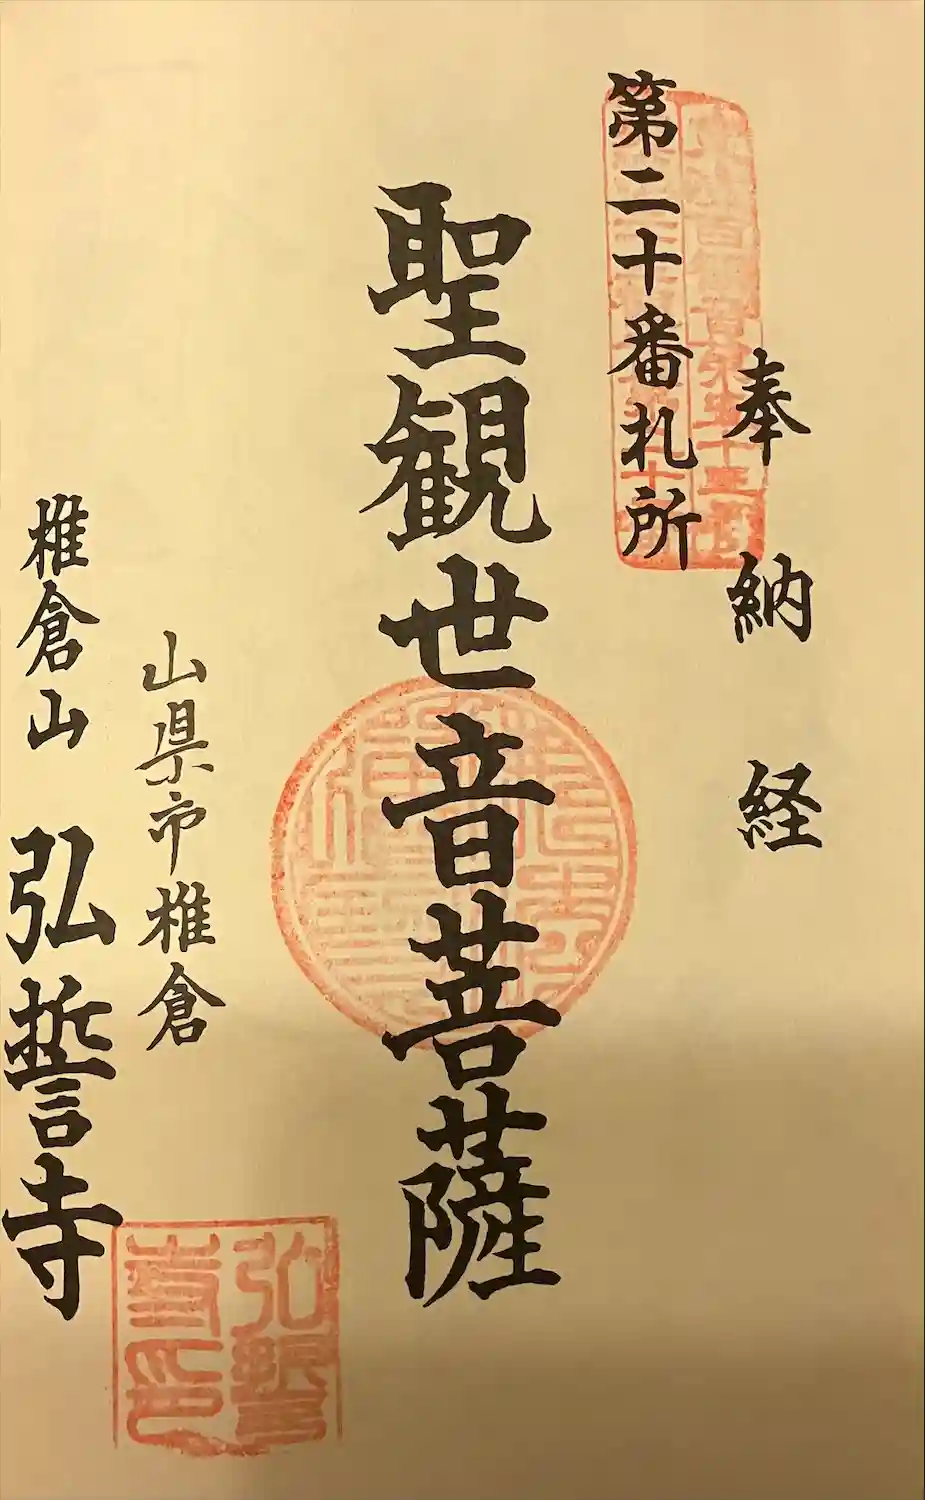 奉納経
第二十番札所
聖観世音菩薩
山県市椎倉
椎倉山 弘誓寺
弘誓
寺印